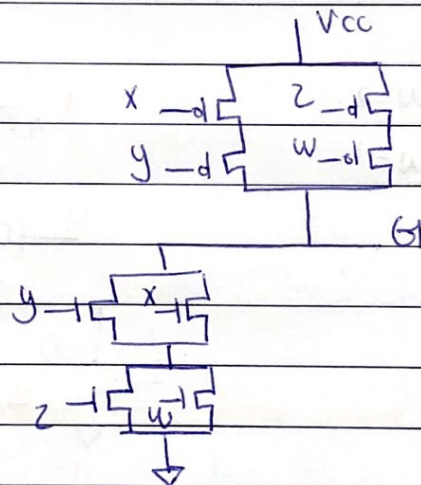 Vcc
x z
y w
y x
z w